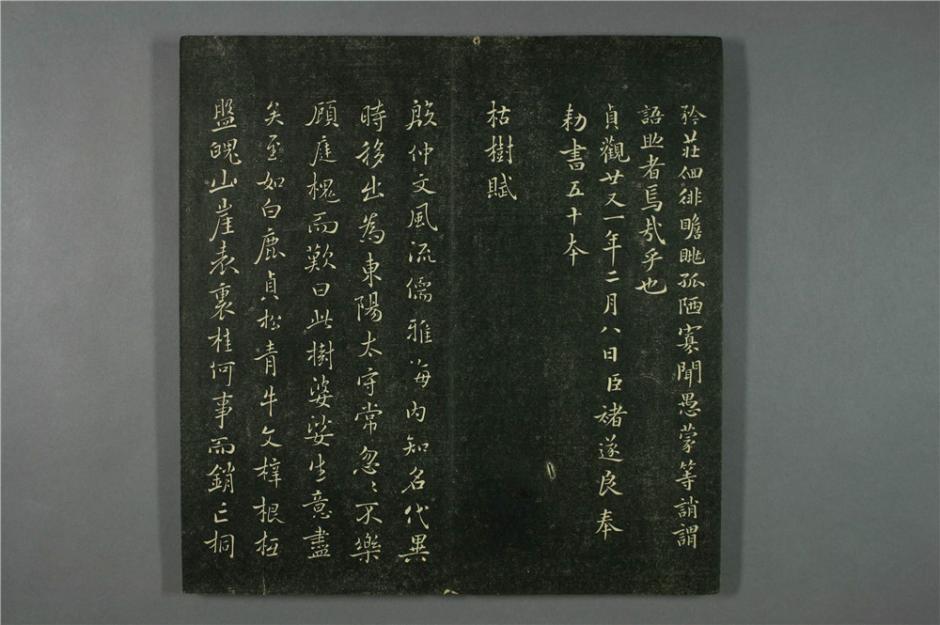 矜莊俳佪瞻眺孤陋寡聞愚蒙等誚謂
語助者焉哉乎也
貞觀廿又一年二月八日臣褚遂良奉
勅書五十本
枯樹賦
殷仲文風流儒雅海內知名代異
時移出為東陽太守常忽〻不樂
顧庭槐而歎曰此樹婆娑生意盡
矣至如白鹿貞松青牛文梓根柢
盤魄山崖表裏桂何事而銷亡桐